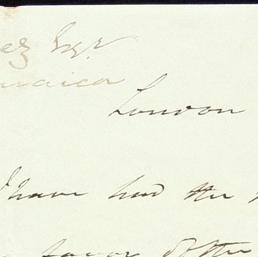 ez Esqr
maica
London
I have had the
favor of the